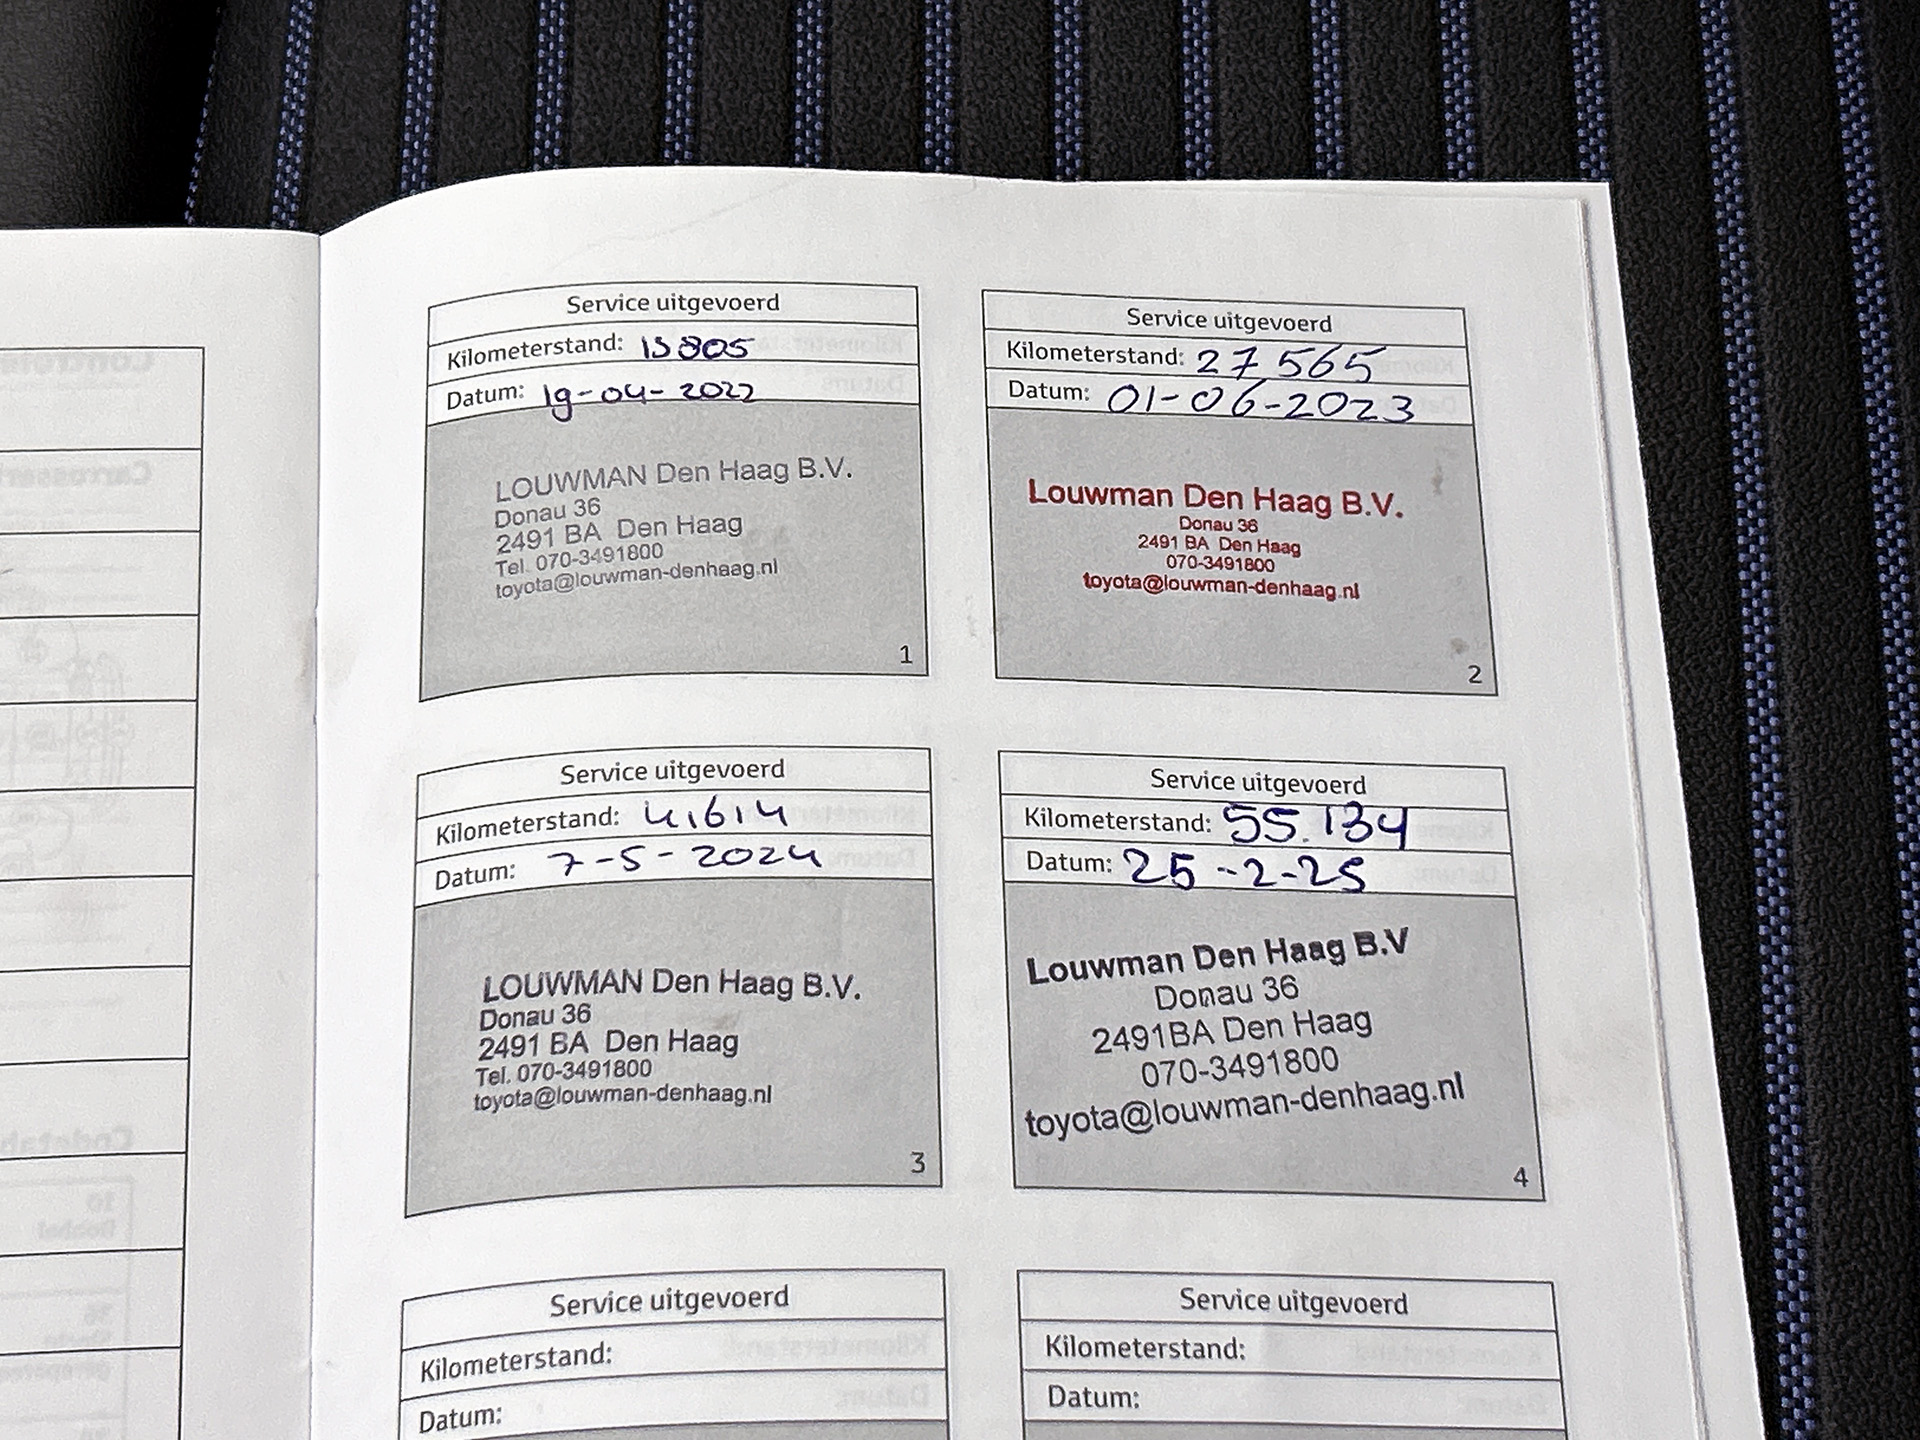 Service uitgevoerd
Kilometerstand: 15805
Datum: 19-04-2022
LOUWMAN Den Haag B.V.
Donau 36
2491 BA Den Haag
Tel. 070-3491800
toyota@louwman-denhaag.nl
1
Service uitgevoerd
Kilometerstand: 27 565
Datum: 01-06-2023
Louwman Den Haag B.V.
Donau 36
2491 BA Den Haag
070-3491800
toyota@louwman-denhaag.nl
2
Service uitgevoerd
Kilometerstand: 41614
Datum: 7-5-2024
LOUWMAN Den Haag B.V.
Donau 36
2491 BA Den Haag
Tel. 070-3491800
toyota@louwman-denhaag.nl
3
Service uitgevoerd
Kilometerstand: 55.134
Datum: 25-2-25
Louwman Den Haag B.V
Donau 36
2491BA Den Haag
070-3491800
toyota@louwman-denhaag.nl
4
Service uitgevoerd
Kilometerstand:
Datum:
Service uitgevoerd
Kilometerstand:
Datum: